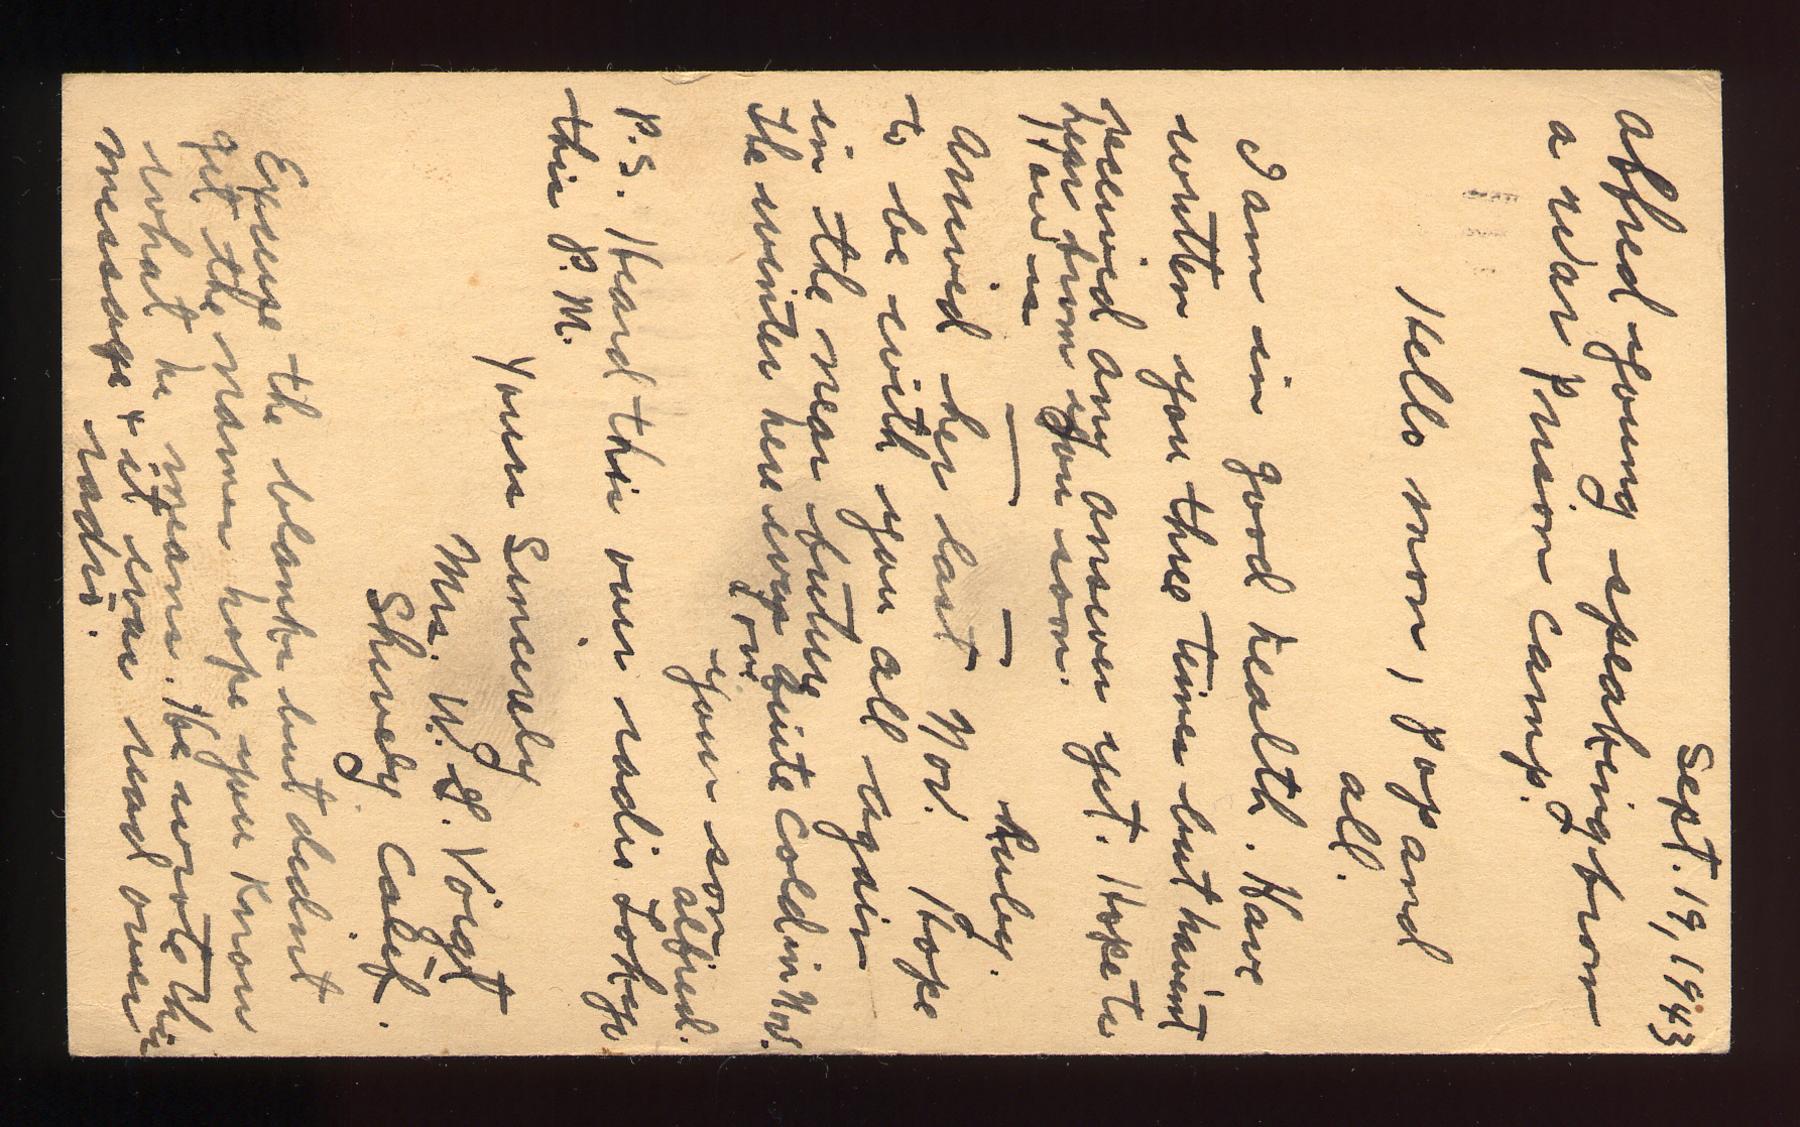 Sept. 19, 1943
Alfred young speaking from
a War Prison Camp.
Hello mom, pop and
all.
I am in good health. Have
written you three times but havent
received any answer yet. Hope to
hear from you soon.
How is — — Ruby.
Arrived her last Nov. Hope
to be with you all again
in the near future
The winter here very quite cold in Nov.
Love
your son
Alfred.
P.S. Heard this over radio Tokyo
this P.M.
Yours Sincerely
Mrs. W. L. Voigt
Shively Calif.
Excuse the blanks but didnt
get the names hope you know
what he means. He wrote this
message & it was read over
radio.